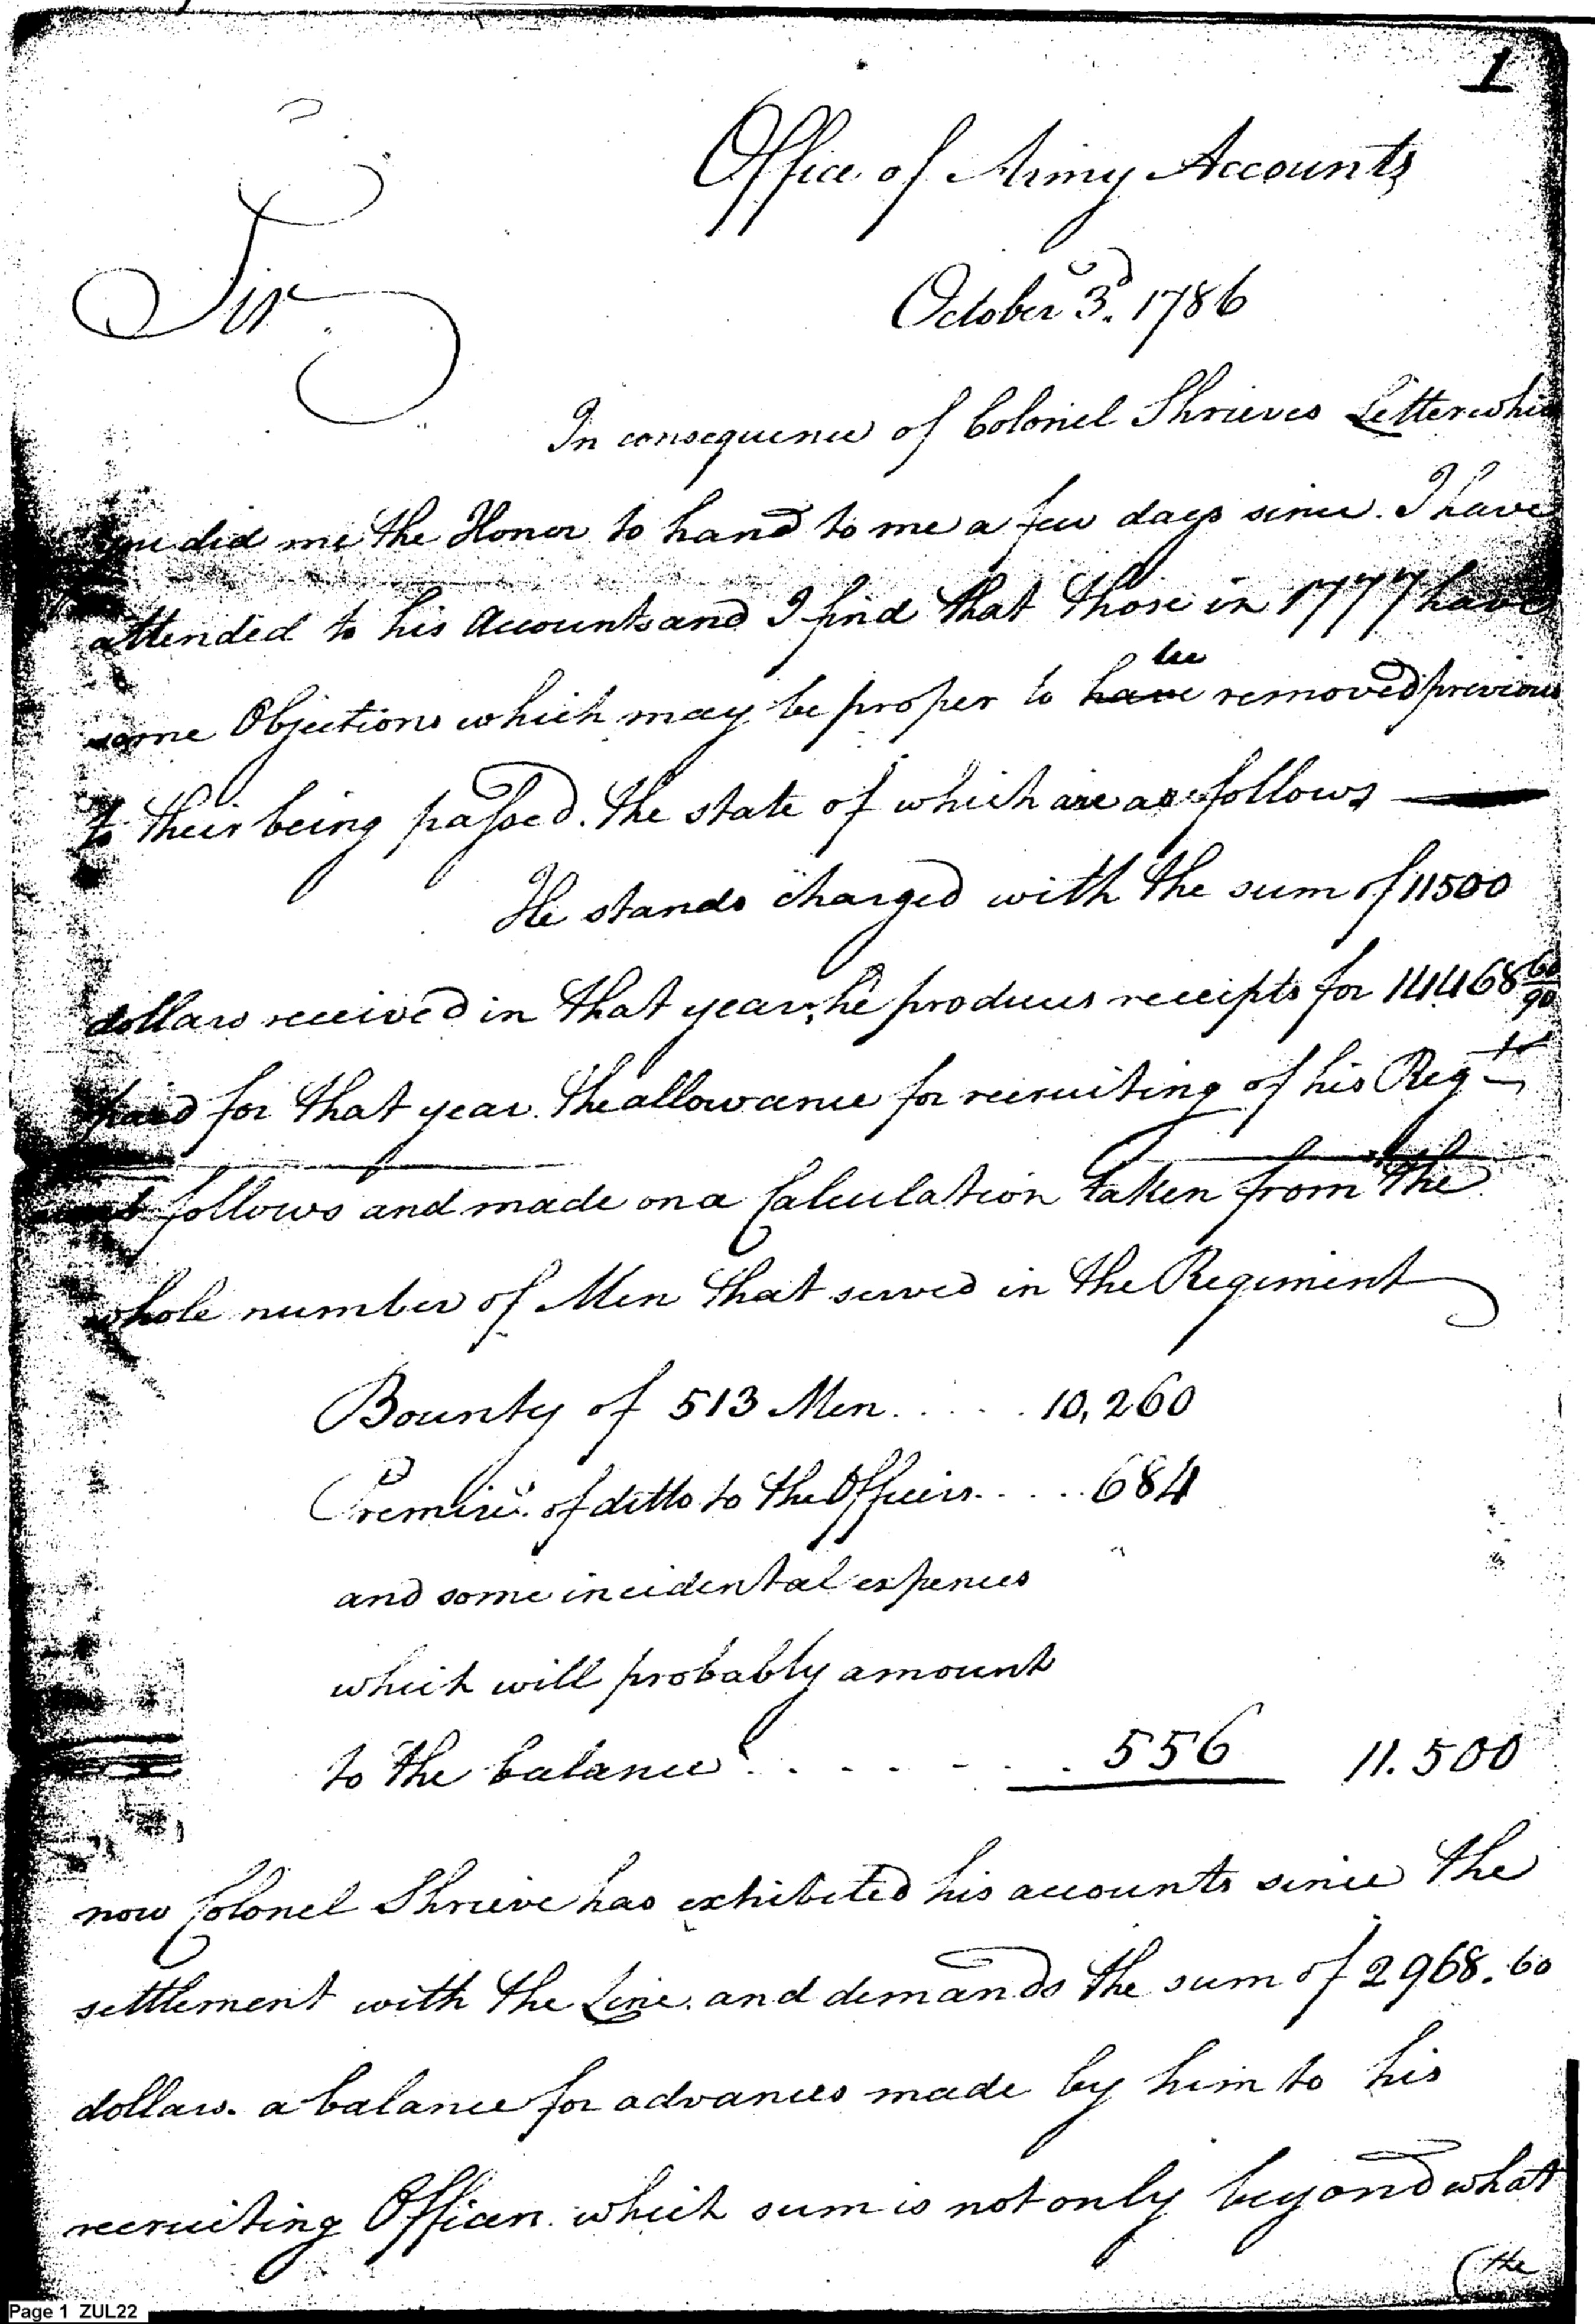 1
Office of Army Accounts
October 3d. 1786
Sir
In consequence of Colonel Shrieves Letter which
you did me the Honor to hand to me a few days since. I have
attended to his Accounts and I find that those in 1777 have
some Objections which may be proper to have be removed previous
to their being passed. the state of which are as follows
He stands charged with the sum of 11500
dollars received in that year, he produces receipts for 14468 60/90
paid for that year. the allowance for recruiting of his Regt
as follows and made on a Calculation taken from the
whole number of Men that served in the Regiment
Bounty of 513 Men..... 10,260
of ditto to the Officers..... 684
and some incidental expences
which will probably amount
to the balance....... 556 11.500
now Colonel Shrieve has exhibited his accounts since the
settlement with the Line. and demands the sum of 2968.60
dollars. a balance for advances made by him to his
recruiting Officers. which sum is not only beyond what
(the
Page 1 ZUL22